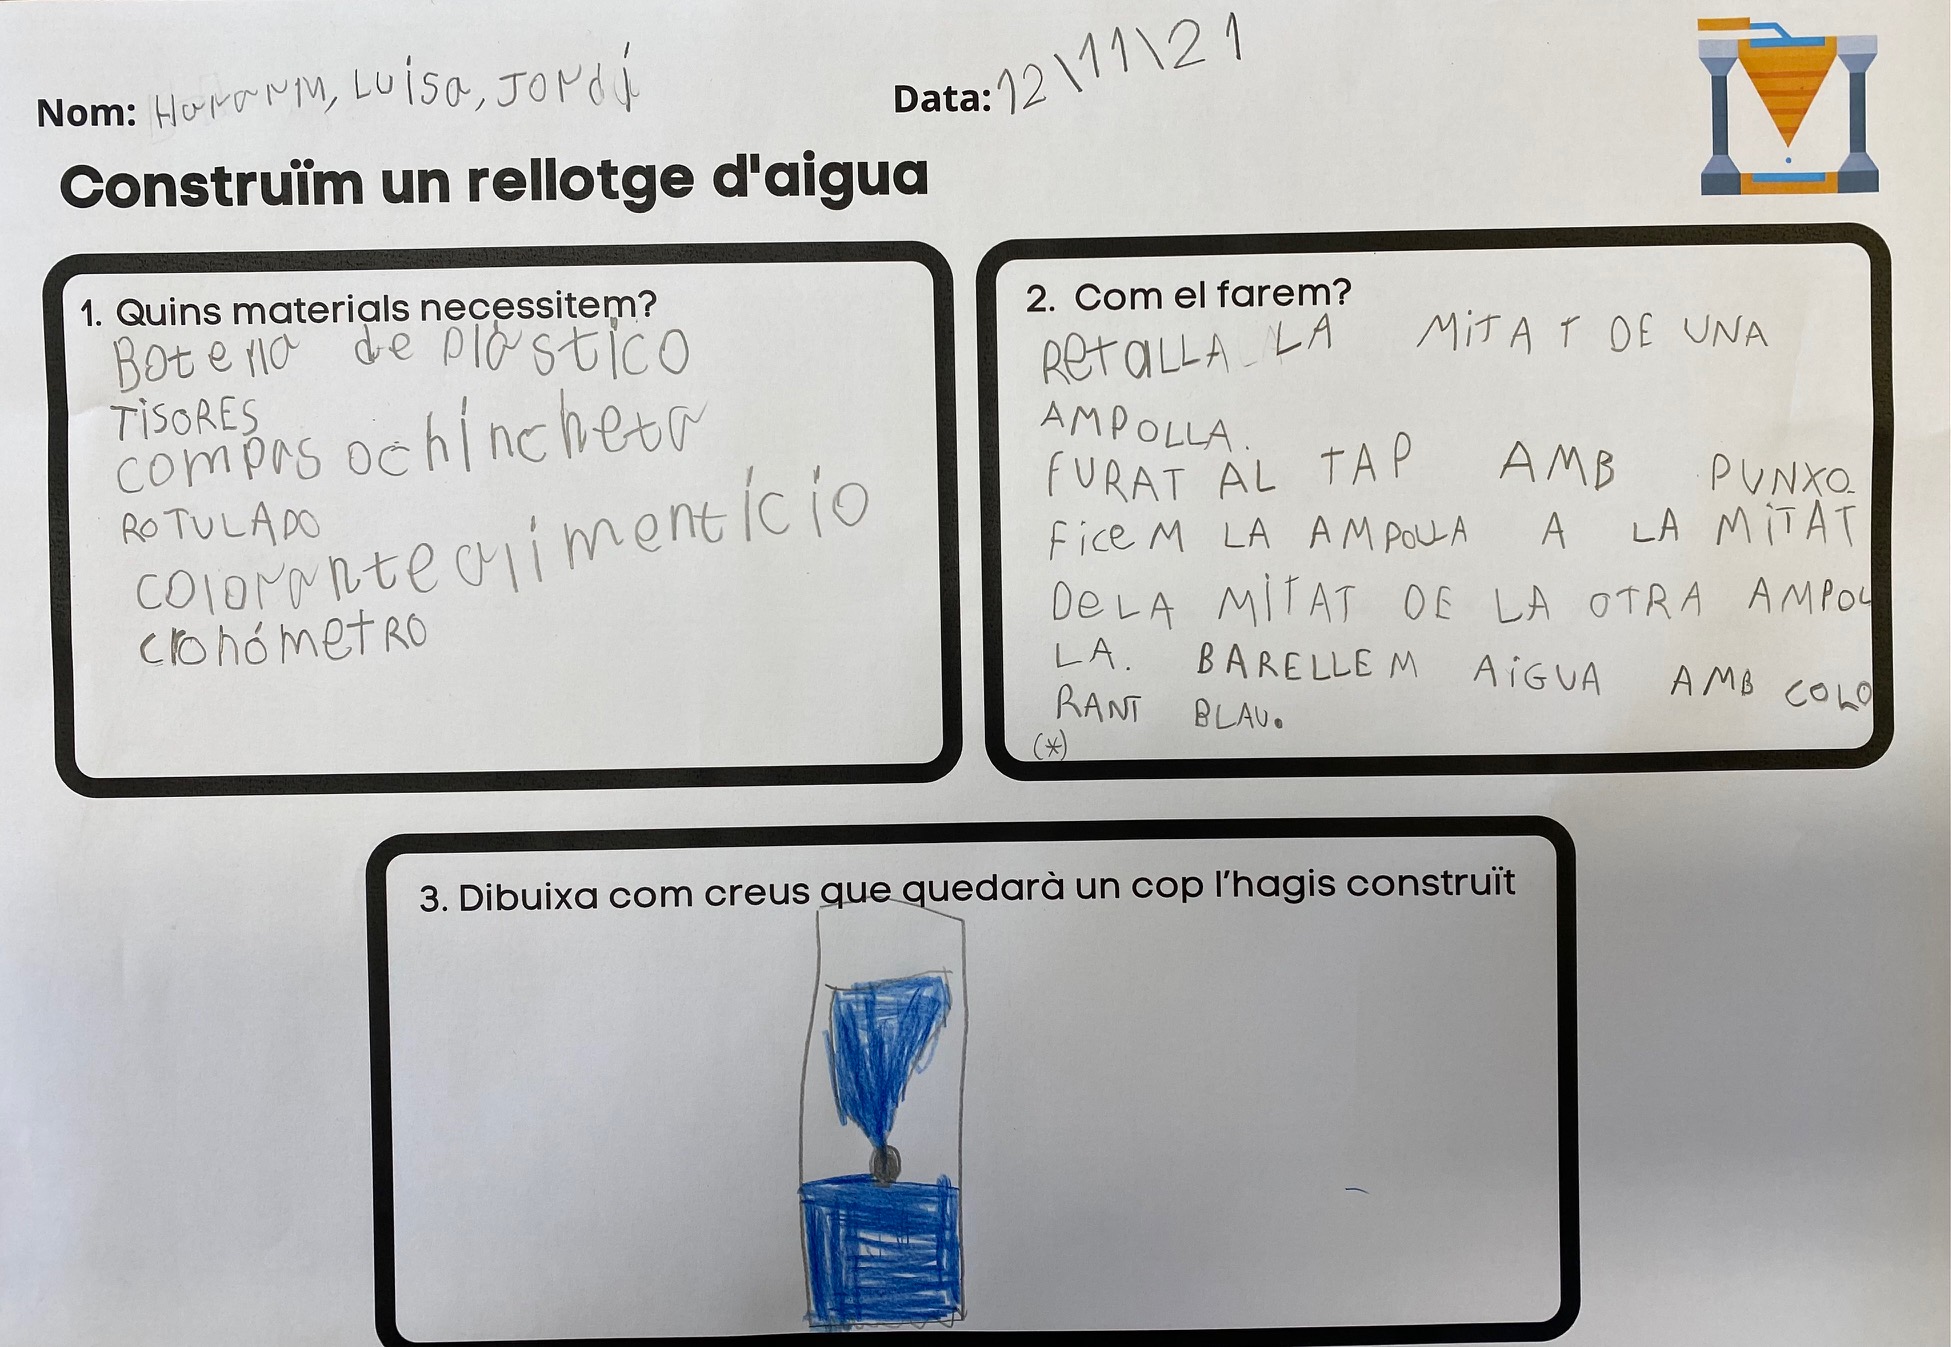 Nom: Luisa, Jordi
Data: 12\11\21
Construïm un rellotge d'aigua
1. Quins materials necessitem?
Botella de plástico
TiSORES
compas o chincheta
ROTULADO
colorante alimentício
cronómetRO
2. Com el farem?
RetaLLA LA MiTAT DE UNA
AMPOLLA.
FURAT AL TAP AMB PUNXO
FiceM LA AMPOLLA A LA MiTAT
DeLA MiTAT DE LA OTRA AMPOL
LA. BARELLEM AiGUA AMB COLO
RANT BLAU.
(*)
3. Dibuixa com creus que quedarà un cop l'hagis construït